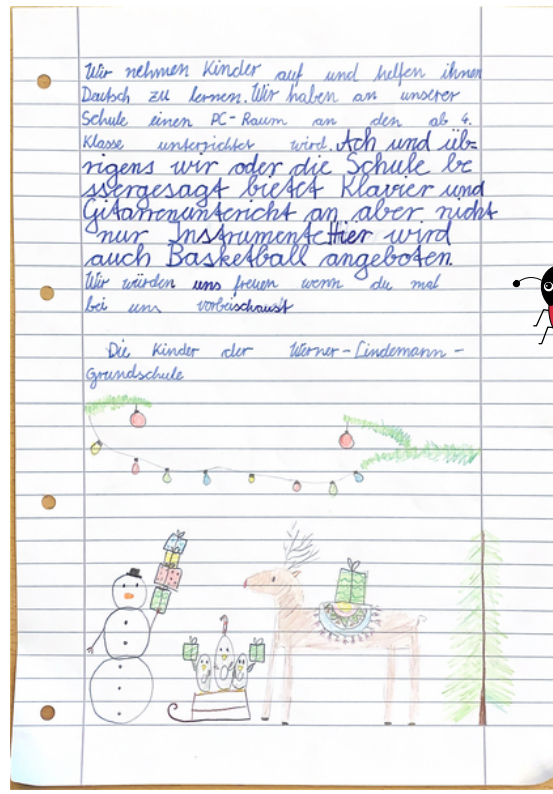 Wir nehmen Kinder auf und helfen ihnen
Deutsch zu lernen. Wir haben an unserer
Schule einen PC-Raum an den ab 4.
Klasse unterrichtet wird. Ach und üb=
rigens wir oder die Schule be
ssergesagt bietet Klavier und
Gitarrenunterricht an aber nicht
nur Instrumente Hier wird
auch Basketball angeboten.
Wir würden uns freuen wenn du mal
bei uns vorbeischaust
Die Kinder der Werner-Lindemann-
Grundschule